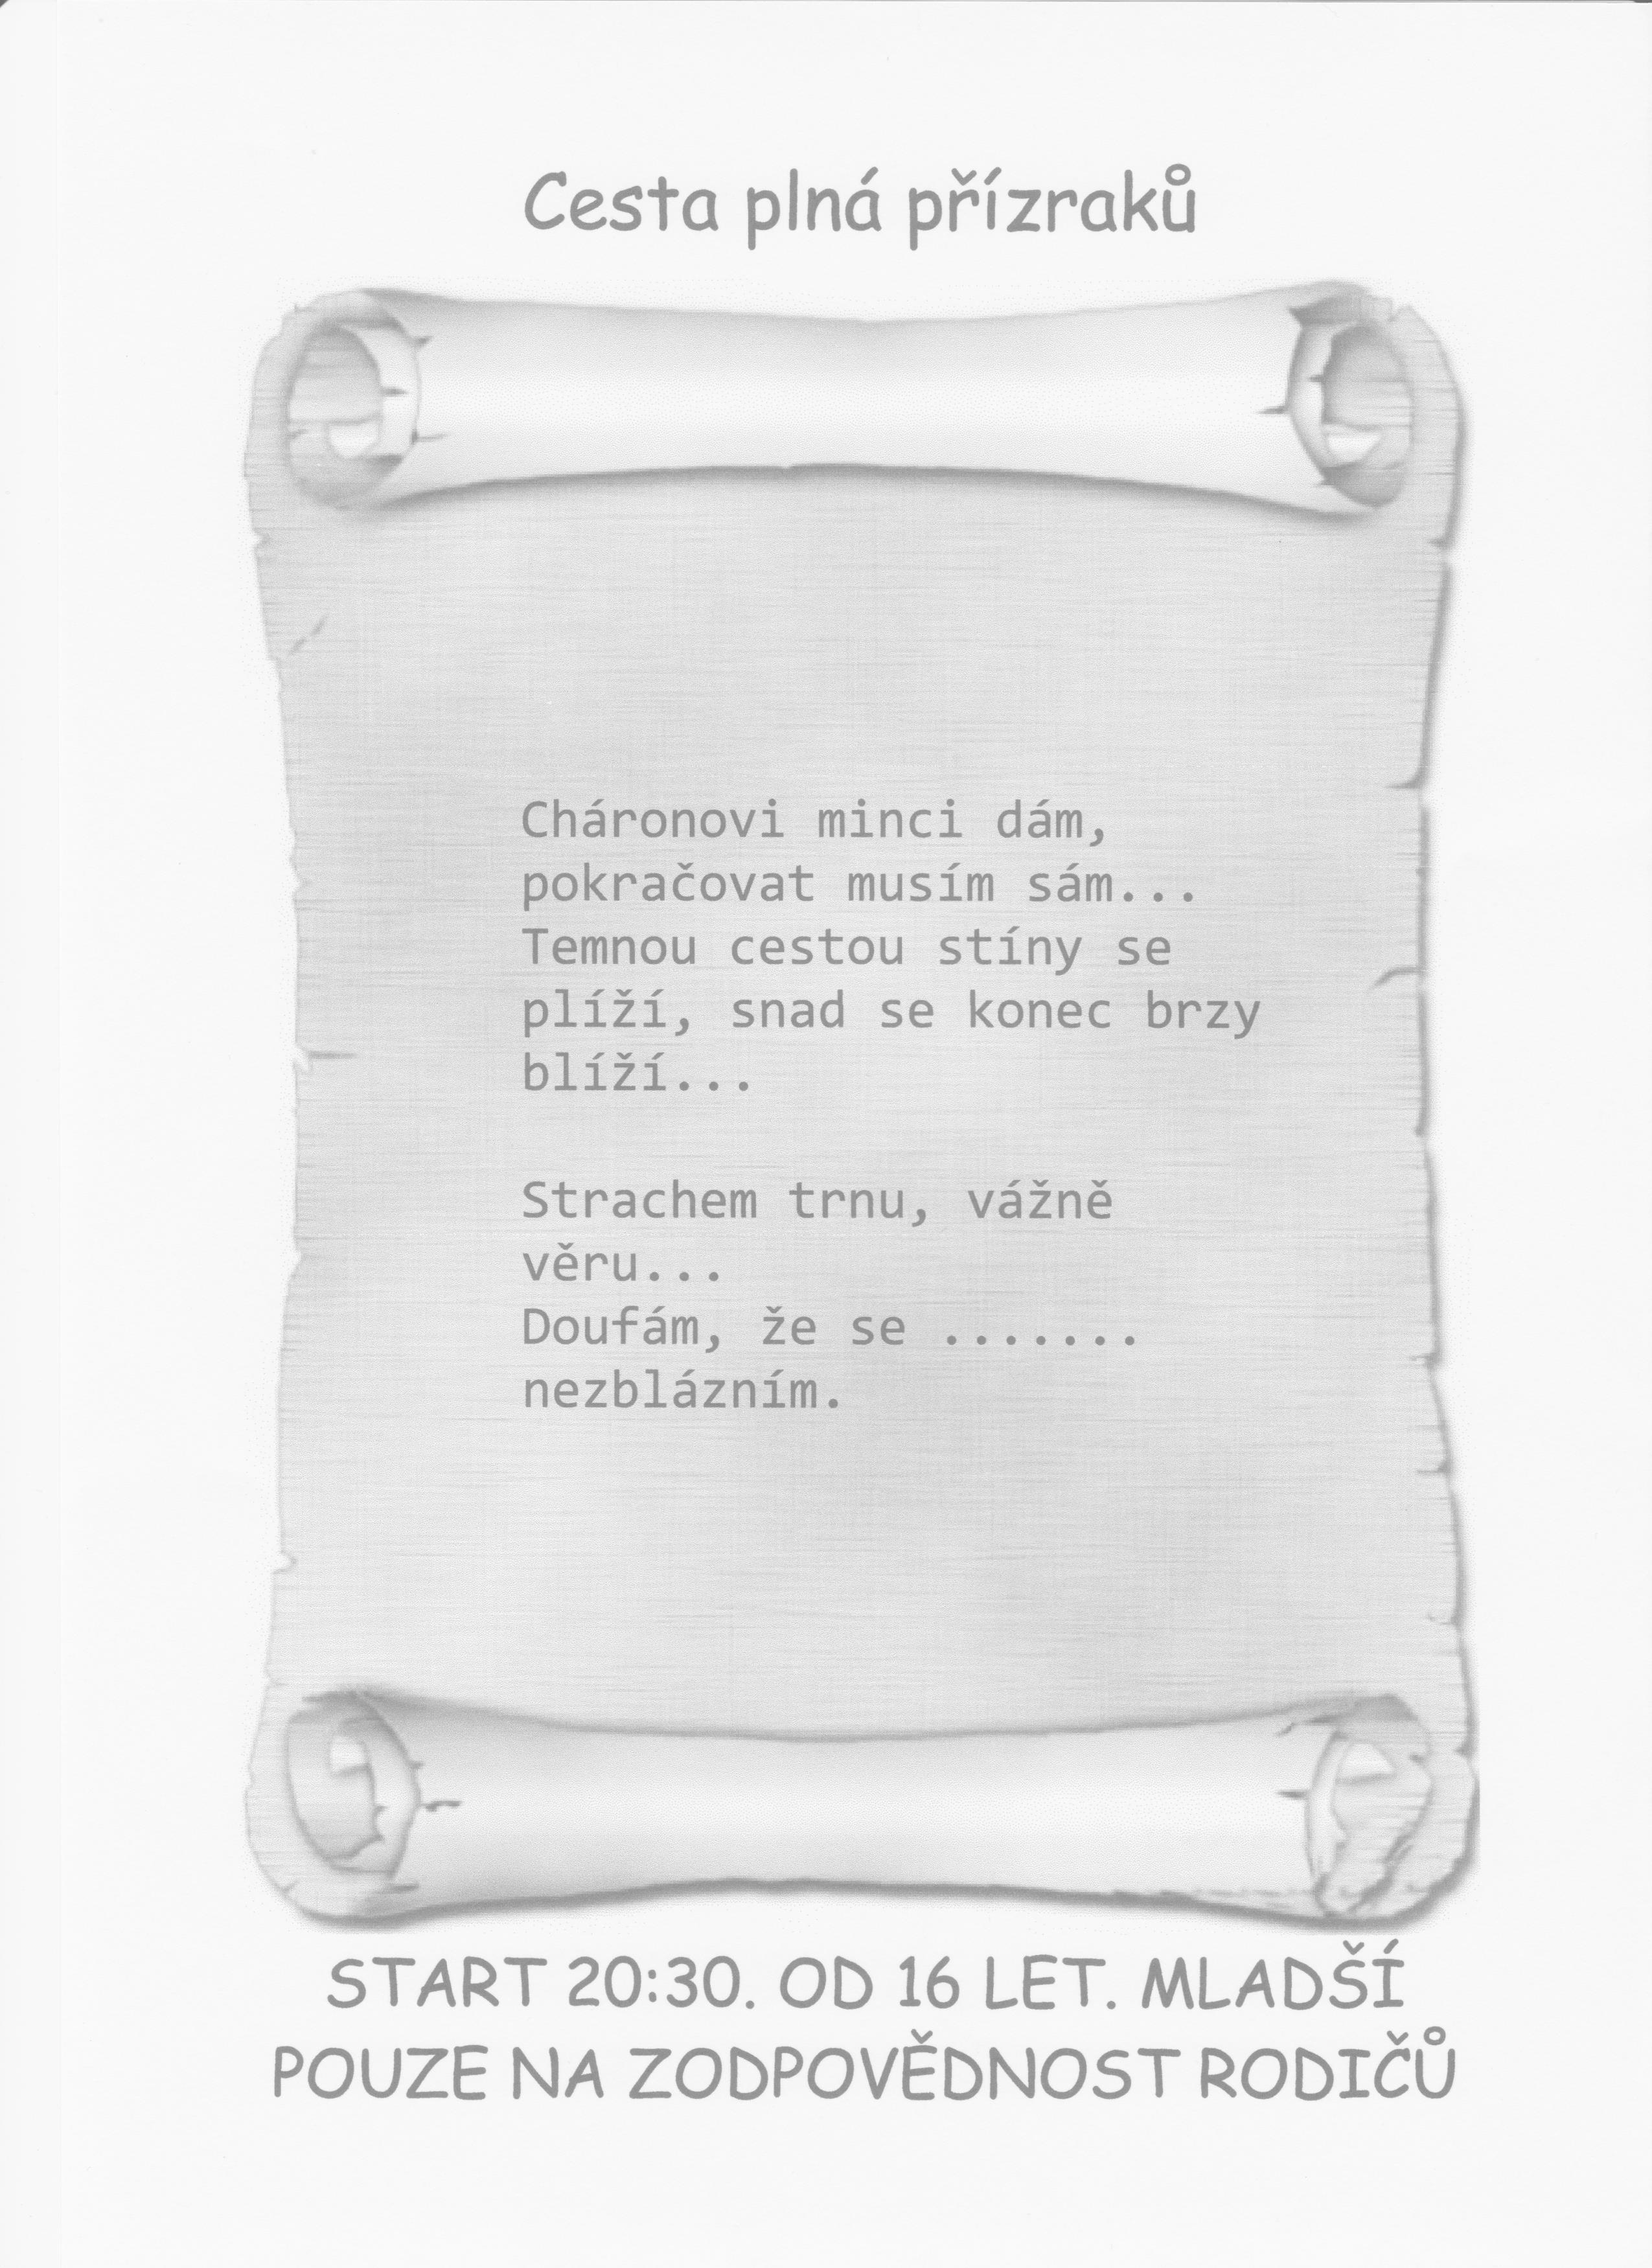 Cesta plná přízraků
Cháronovi minci dám,
pokračovat musím sám...
Temnou cestou stíny se
plíží, snad se konec brzy
blíží...
Strachem trnu, vážně
věru...
Doufám, že se .......
nezblázním.
START 20:30. OD 16 LET. MLADŠÍ
POUZE NA ZODPOVĚDNOST RODIČŮ